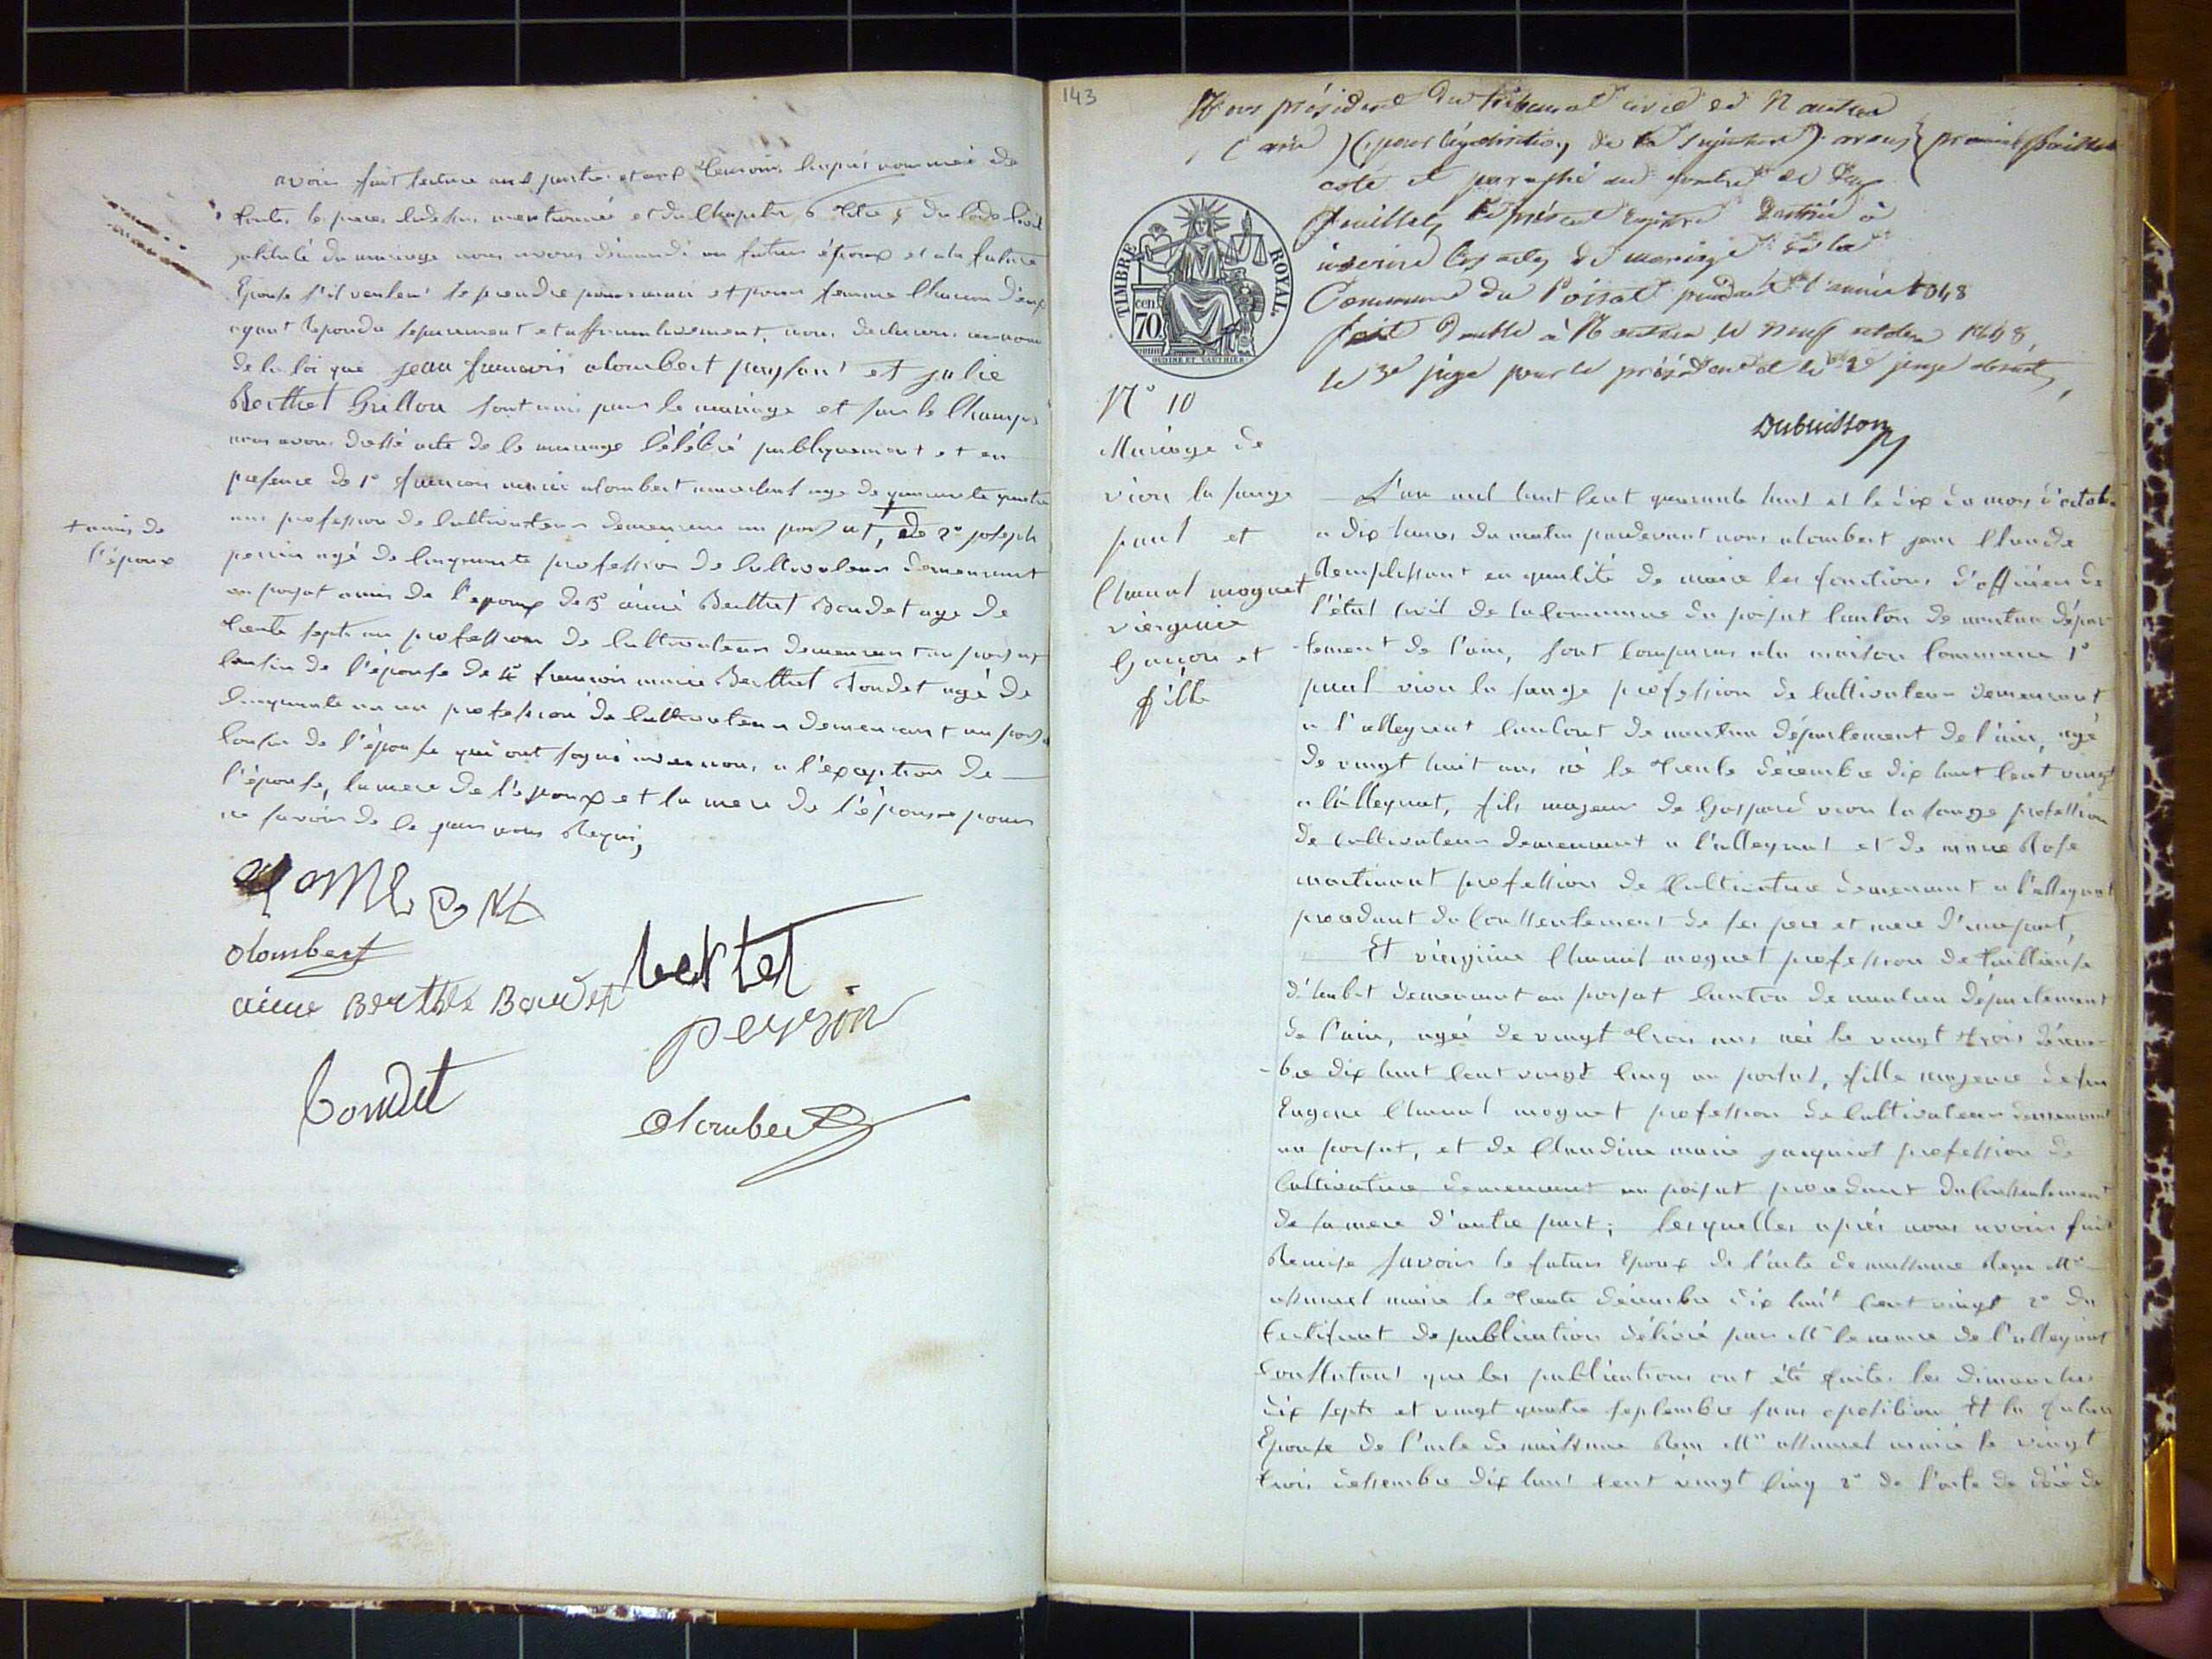 avoir fait lecture aux parties et aux temoins ci après nommés de
toutes les pieces cidessus mentionnées et du Chapitre 6 titre 5 du Code Civil
intitulé du mariage nous avons demandé au futur époux et ala future
Epouse s'il veulent se prendre pour mari et pour femme Chacun d'eux
ayant repondu separement et affirmativement, nous declarons au nom
de la loi que jean francois alombert et julie
Berthet Grillon sont unis par le mariage et sur le Champ
nous avons dressé acte de le mariage Célébré publiquement et en
presence de 1° francois marie alombert age de quarante quatre
ans profession de Cultivateur demeurant au poisat, + de 2° joseph
perrin agé de Cinquante profession de Cultivateur demeurant
au poizat amis de l'epoux de 3° aimé Berthet Bondet age de
trente sept an profession de Cultivateur demeurant au poizat
Cousin de l'épouse de 4° francois marie Berthet Tondet agé de
Cinquante un an profession de Cultivateur demeurant au poiz
Cousin de l'épouse qui ont signé avec nous, a l'exception de
l'épouse, la mere de l'epoux et la mere de l'épouse pour
ne savoir de ce par nous Requis,
+ amis de
l'époux
alombert
aime Berthet Bondet
bertet
perrin
tondet
alombert
143
Nous président du tribunal civil de Nantua
(ain) (pour légalisation de la signature) avons
coté et paraphé au nombre de
feuillets le présent registre destiné à
inscrire les actes de mariage de la
Commune du Poisat pendant l'année 1848
fait double à Nantua le neuf octobre 1848,
le 3e juge pour le président et le 2e juge absents,
Dubuisson
TIMBRE ROYAL
cent 70
N° 10
Mariage de
vion la sauge
paul et
Chanal moguet
viergine
Garcon et
fille
L'an mil huit Cent quarante huit et le dix du mois d'octobre
a dix heures du matin pardevant nous alombert jean Claude
Remplissant en qualité de maire les fonctions d'officier de
l'état Civil de la Commune du poisat Canton de nantua dépar
-tement de l'ain, sont Comparus ala maison Commune 1°
paul vion la sauge profession de Cultivateur demeurant
a l'alleyriat Canton de nantua département de l'ain, agé
de vingt huit ans né le trente décembre dix huit Cent vingt
a l'alleyriat, fils majeur de Gaspard vion la sauge profession
de Cultivateur demeurant a l'alleyriat et de marie Rose
martinant profession de Cultivatrice demeurant a l'alleyriat
procedant du Conssentement de ses pere et mere d'une part,
Et viergine Chanal moguet profession de tailleuse
d'habit demeurant au poisat Canton de nantua département
de l'ain, agée de vingt trois ans née le vingt trois décem-
-bre dix huit Cent vingt Cinq au poisat, fille majeure de feu
Eugene Chanal moguet profession de Cultivateur demeurant
au poisat, et de Claudine marie jacquiot profession de
Cultivatrice demeurant au poisat procedant du Conssentement
de sa mere d'autre part; lesquelles après nous avoir fait
Remise savoir le futur Epoux de l'acte de naissance Reçu Mr
assumel maire le trente décembre dix huit Cent vingt 2° du
Certificat de publication délivré par Mr le maire de l'alleyriat
Constatant que les publications ont été faites les dimanches
dix sept et vingt quatre septembre sans oposition Et la future
Epouse de l'acte de naissance Reçu Mr assumel maire le vingt
trois dessembre dix huit Cent vingt Cinq 2° de l'acte de décé de